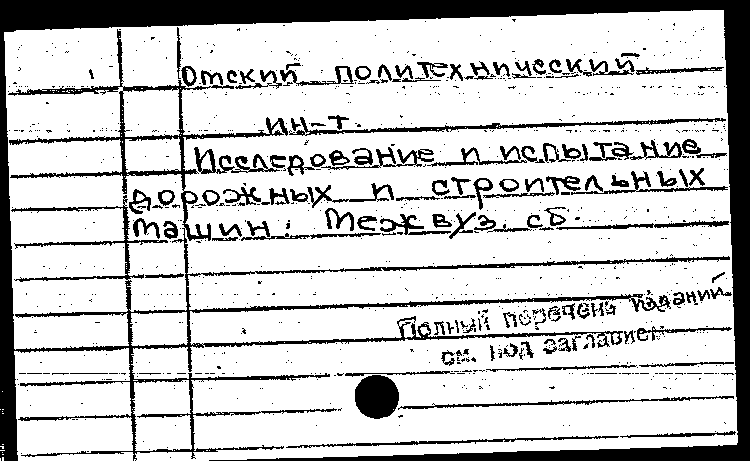 Омский политехнический
ин-т.
Исследование и испытание
дорожных и строительных
машин: Межвуз. сб.
Полный перечень изданий
см. под заглавием